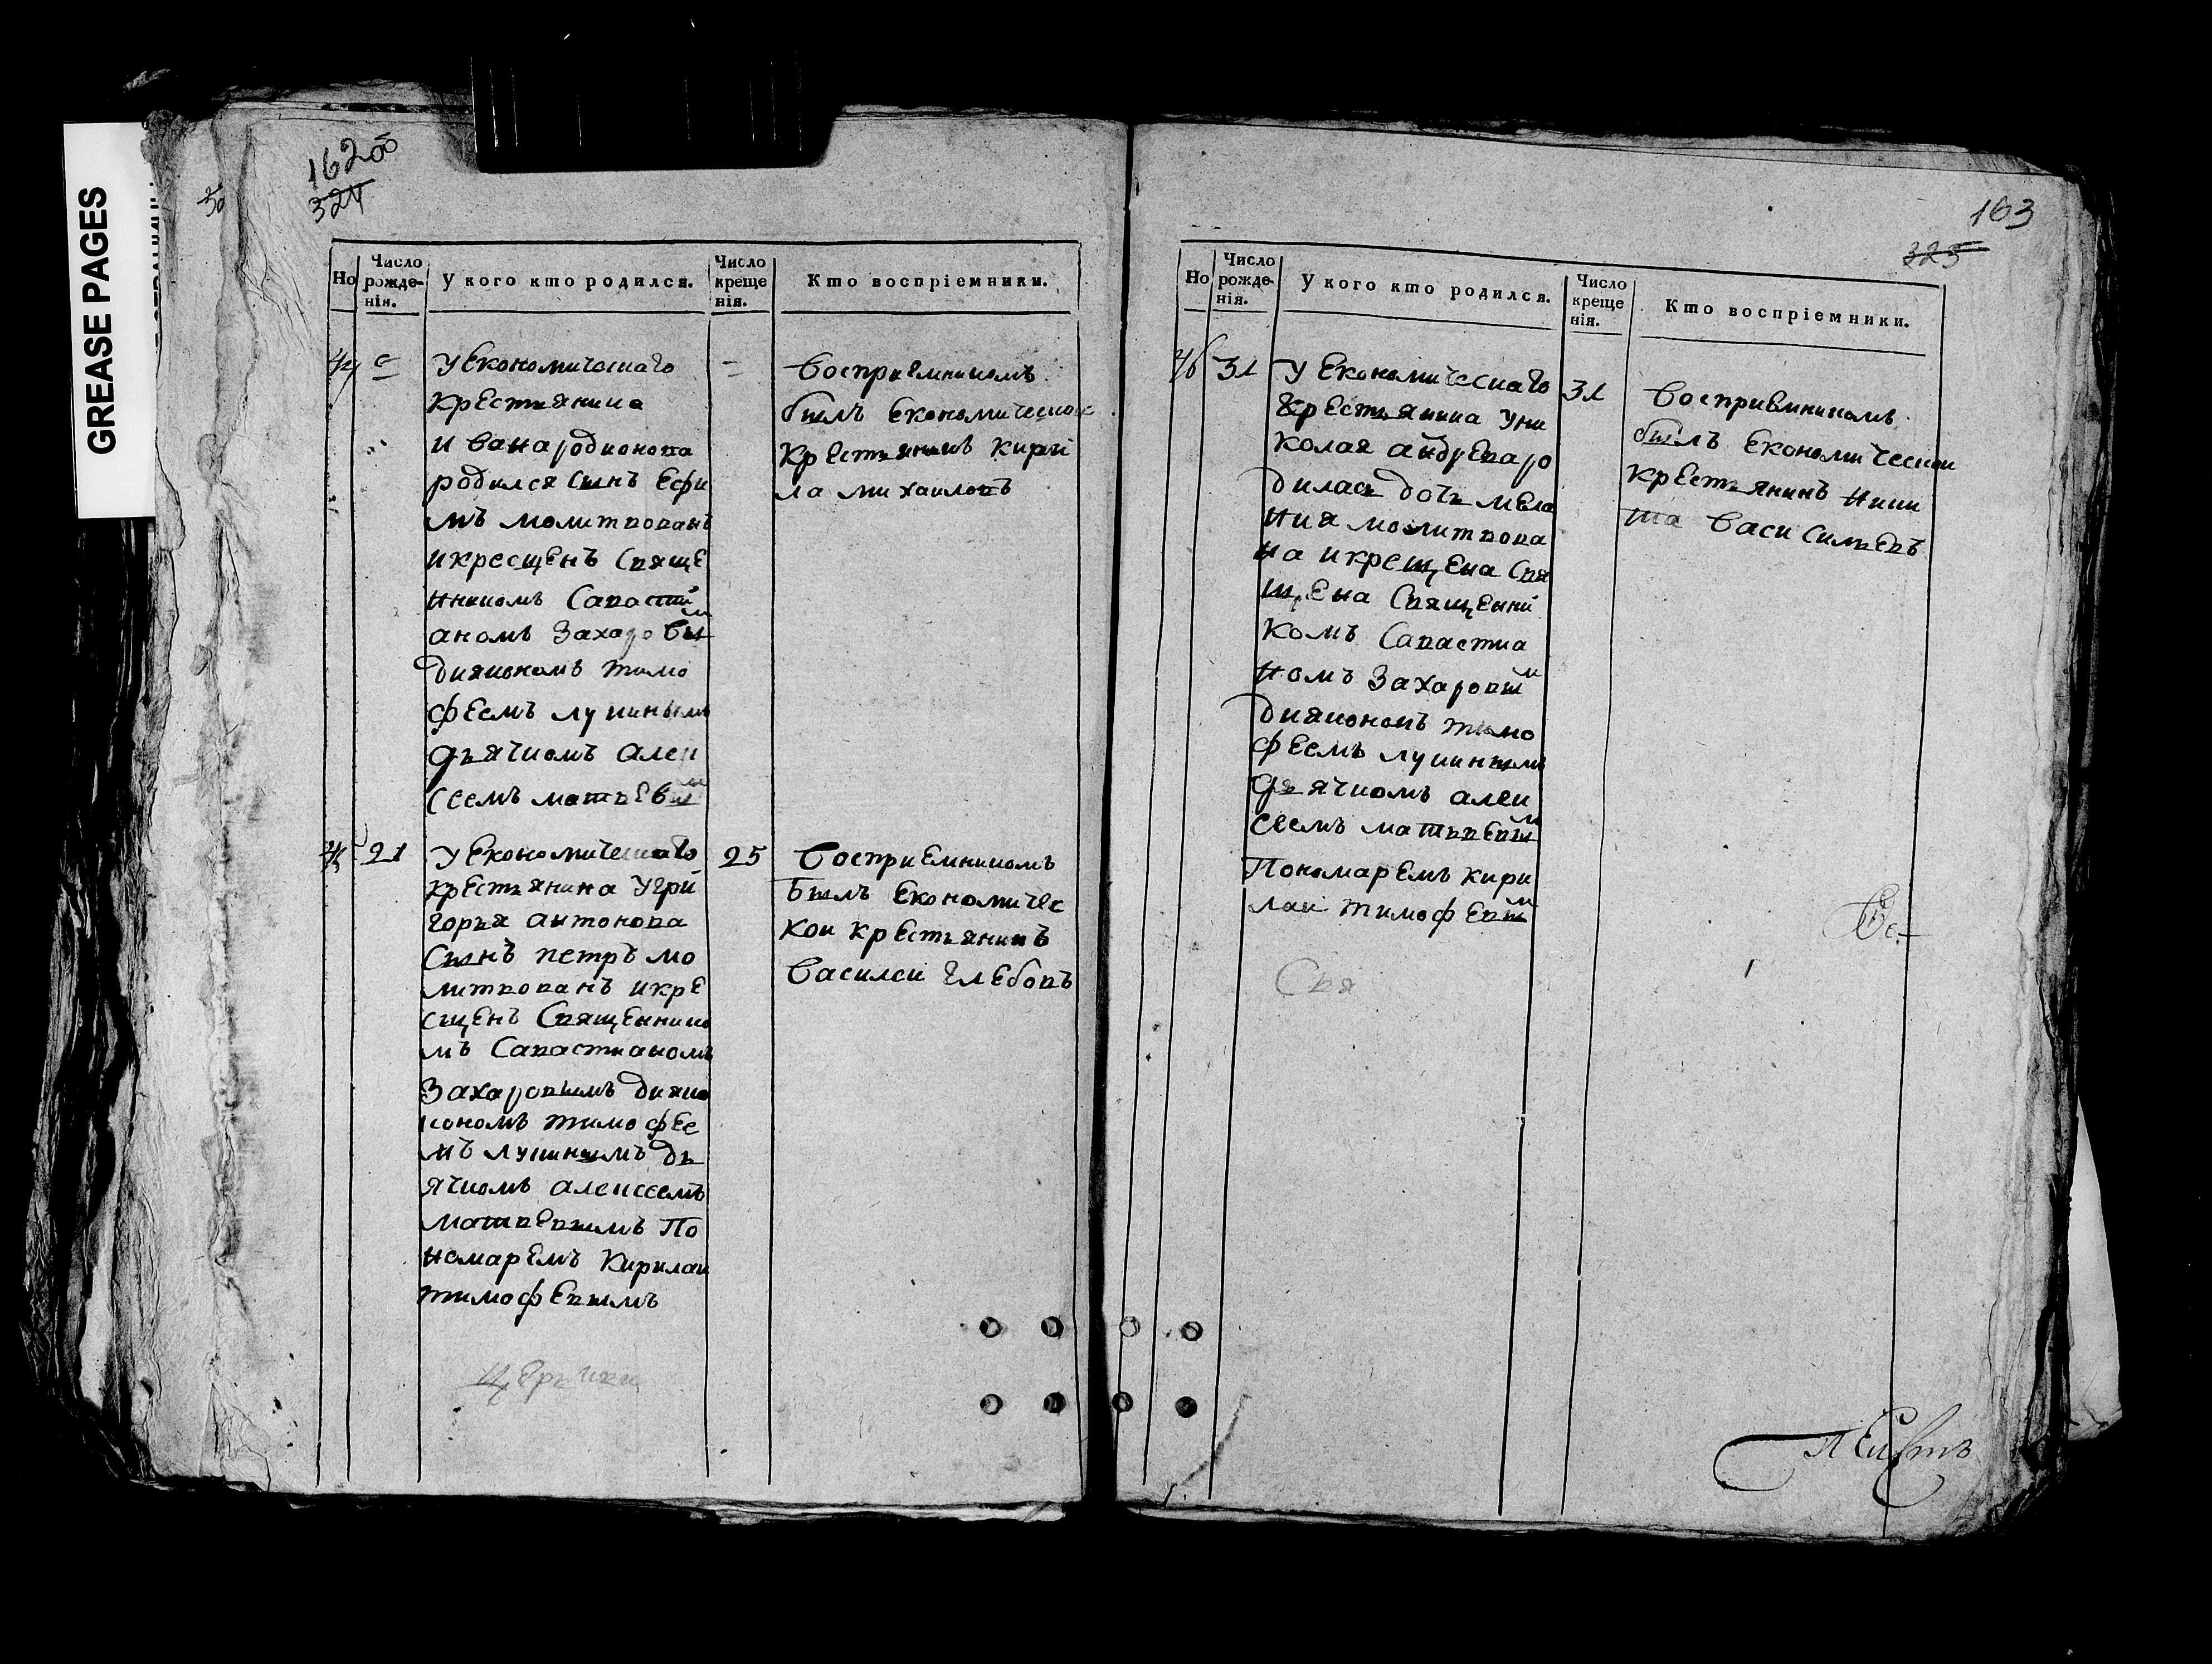 GREASE PAGES
162об
324
Но
Число рожде-нія.
У кого кто родился.
Число креще нія.
Кто воспріемники.
У Економическаго
крестьянина
Ивана родионова
родился сынъ Ефи
мъ молитвованъ
икресщенъ Свяще
нникомъ Савасти
аномъ Захаровым
дияконом тимо
феемъ лукинымъ
дьячкомъ алек
сеемъ матвевым
Восприемникомъ
былъ Економическои
крестьянинъ кири
ла михаиловъ
21
У Економическаго
крестьянина Угри
горья антонова
Сынъ петръ мо
литвованъ икре
сщенъ Священнико
мъ Савастианомъ
Захаровымъ дияко
кономъ тимофее
мъ лукинымъ дь
ячкомъ алексеемъ
матвевымъ По
номаремъ Кирилаи
тимофевымъ
25
Восприемникомъ
Былъ Економичес
кои крестьянинъ
Василеи Глебовъ
163
325
Но
Число рожде-нія.
У кого кто родился.
Число креще нія.
Кто воспріемники.
31
У Економическаго
Крестьянина Уни
колая андрева ро
дилась дочь мела
ния молитвова
на икрещена Свя
щена Священни
комъ Савастиа
номъ Захаровым
дияконопъ тимо
феемъ лукинымъ
дьячкомъ алек
сеемъ матвевым
Пономаремъ кири
лаи тимофевым
31
Восприемникомъ
былъ Економическои
крестьянинъ Ники
та Васильевъ
Свя